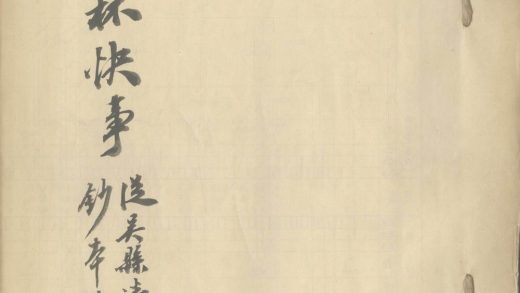 杯快事
從吳縣
鈔本